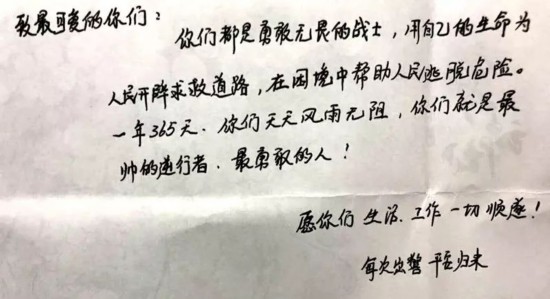 致最可爱的你们：
你们都是勇敢无畏的战士，用自己的生命为
人民开辟求救道路，在困境中帮助人民逃脱危险。
一年365天．你们天天风雨无阻，你们就是最
帅的逆行者．最勇敢的人！
愿你们 生活．工作 一切 顺遂！
每次出警 平安归来